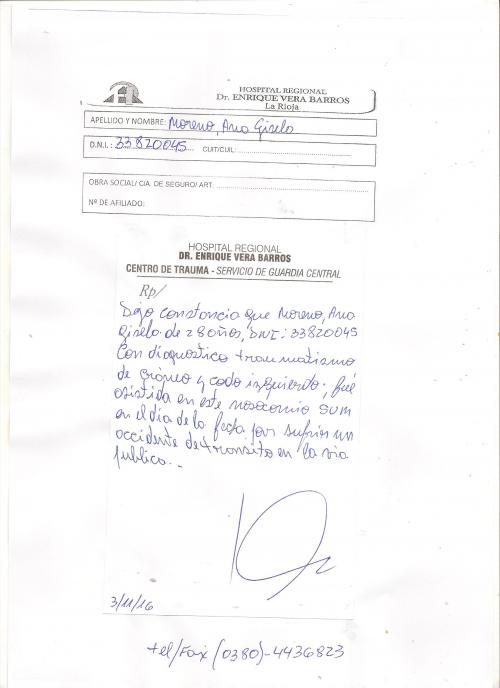 HOSPITAL REGIONAL
Dr. ENRIQUE VERA BARROS
La Rioja
APELLIDO Y NOMBRE: Moreno, Ana Gisela
D.N.I.: 33820045 CUIT/CUIL:
OBRA SOCIAL/ CIA. DE SEGURO/ ART:
Nº DE AFILIADO:
HOSPITAL REGIONAL
DR. ENRIQUE VERA BARROS
CENTRO DE TRAUMA - SERVICIO DE GUARDIA CENTRAL
Rp/
Dejo constancia que Moreno, Ana
Gisela de 28 años, DNI: 33820045
Con diagnostico traumatismo
de cráneo y codo izquierdo; fué
asistida en este nosocomio
en el día de la fecha por sufrir un
accidente de transito en la via
publica.-
3/11/16
tel/Fax (0380)-4436823